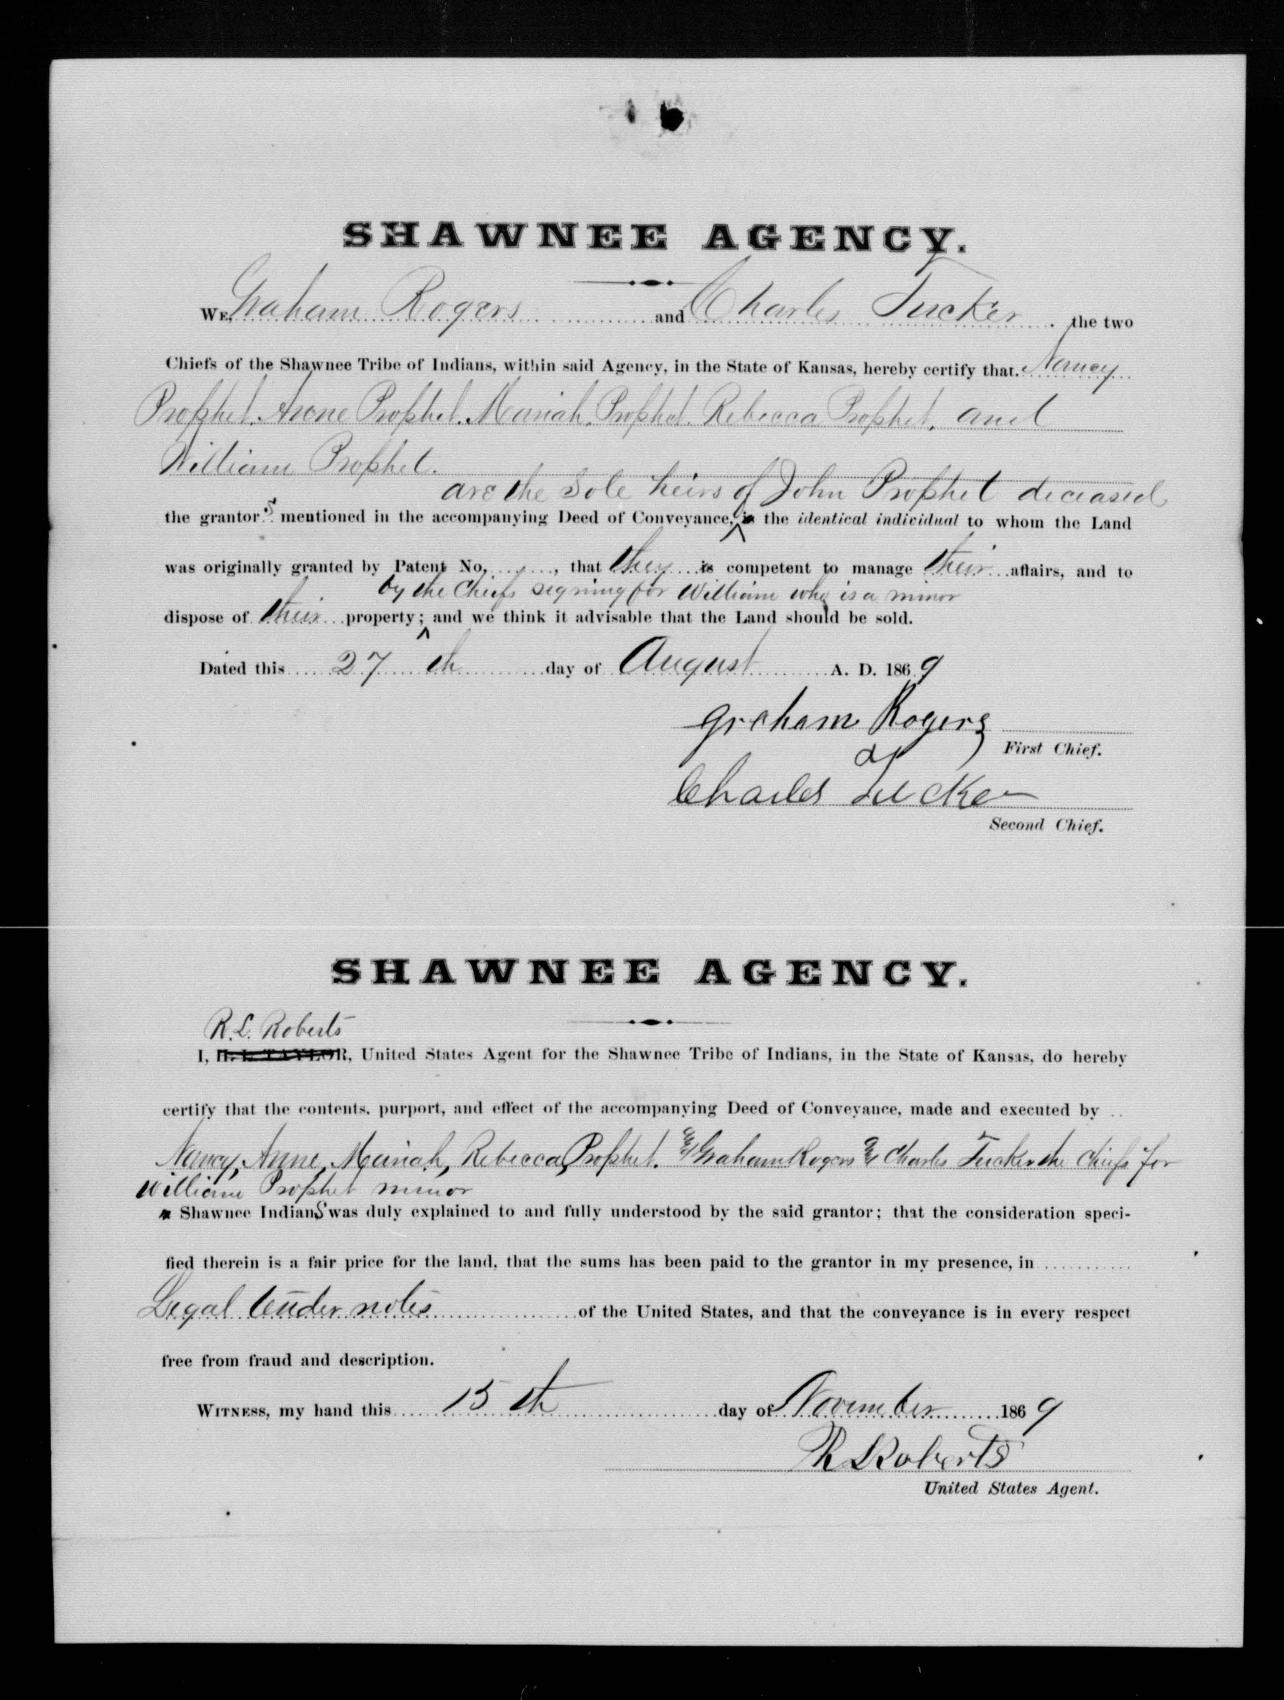 SHAWNEE AGENCY.
WE, Graham Rogers and Charles Tucker, the two
Chiefs of the Shawnee Tribe of Indians, within said Agency, in the State of Kansas, hereby certify that Nancy
Prophet. Anne Prophet. Mariah. Prophet. Rebecca Prophet. and
William Prophet.
are the Sole heirs of John Prophet deceased
the grantors mentioned in the accompanying Deed of Conveyance, is the identical individual to whom the Land
was originally granted by Patent No. , that they is competent to manage their affairs, and to
by the Chiefs signing for William who is a minor
dispose of their property; and we think it advisable that the Land should be sold.
Dated this 27 th day of August A. D. 1869
Graham Rogers
First Chief.
Charles Tucker
Second Chief.
SHAWNEE AGENCY.
R. L. Roberts
I, H. L. TAYLOR, United States Agent for the Shawnee Tribe of Indians, in the State of Kansas, do hereby
certify that the contents, purport, and effect of the accompanying Deed of Conveyance, made and executed by
Nancy, Anne, Mariah, Rebecca, Prophet. & Graham Rogers & Charles Tucker the Chiefs for
William Prophet minor
a Shawnee Indians was duly explained to and fully understood by the said grantor; that the consideration speci-
fied therein is a fair price for the land, that the sums has been paid to the grantor in my presence, in
Legal tender notes of the United States, and that the conveyance is in every respect
free from fraud and description.
WITNESS, my hand this 15 th day of November 1869
R L Roberts
United States Agent.